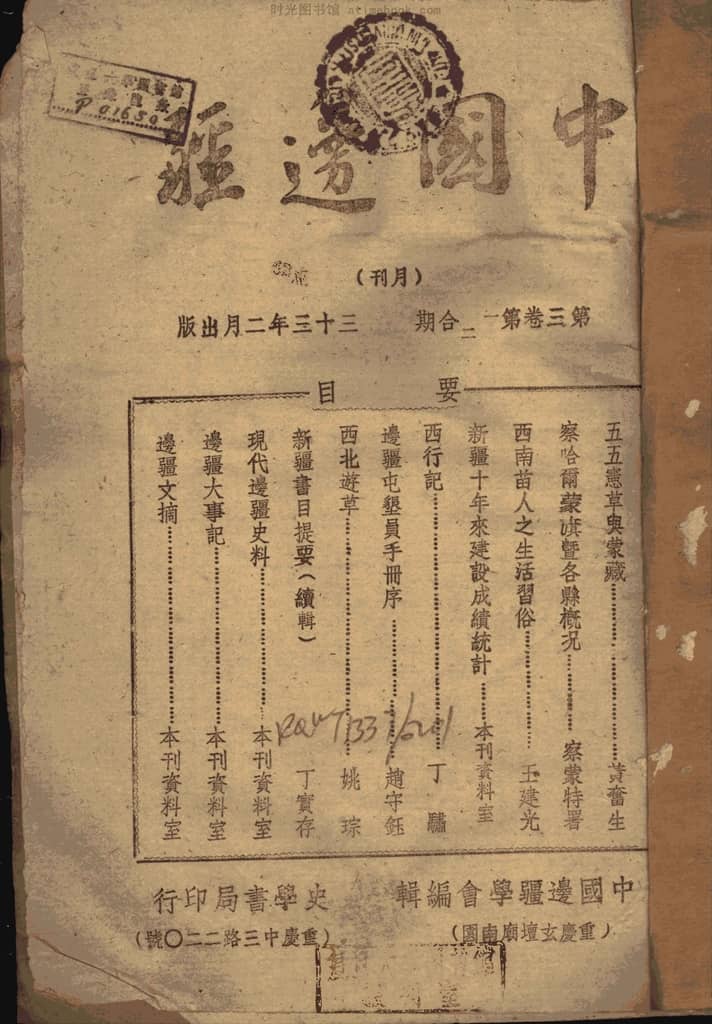 时光图书馆 atimebook.com
P 01650
中國邊疆
（月刊）
第三卷第一二合期
三十三年二月出版
要目
五五憲草與蒙藏……黃奮生
察哈爾蒙旗暨各縣概况……察蒙特署
西南苗人之生活習俗……王建光
新疆十年來建設成績統計……本刊資料室
西行記……丁驌
邊疆屯墾員手冊序……趙守鈺
西北遊草……姚琮
新疆書目提要（續輯）丁實存
現代邊疆史料……本刊資料室
邊疆大事記……本刊資料室
邊疆文摘……本刊資料室
中國邊疆學會編輯
（重慶玄壇廟南園）
史學書局印行
（重慶中三路二二〇號）